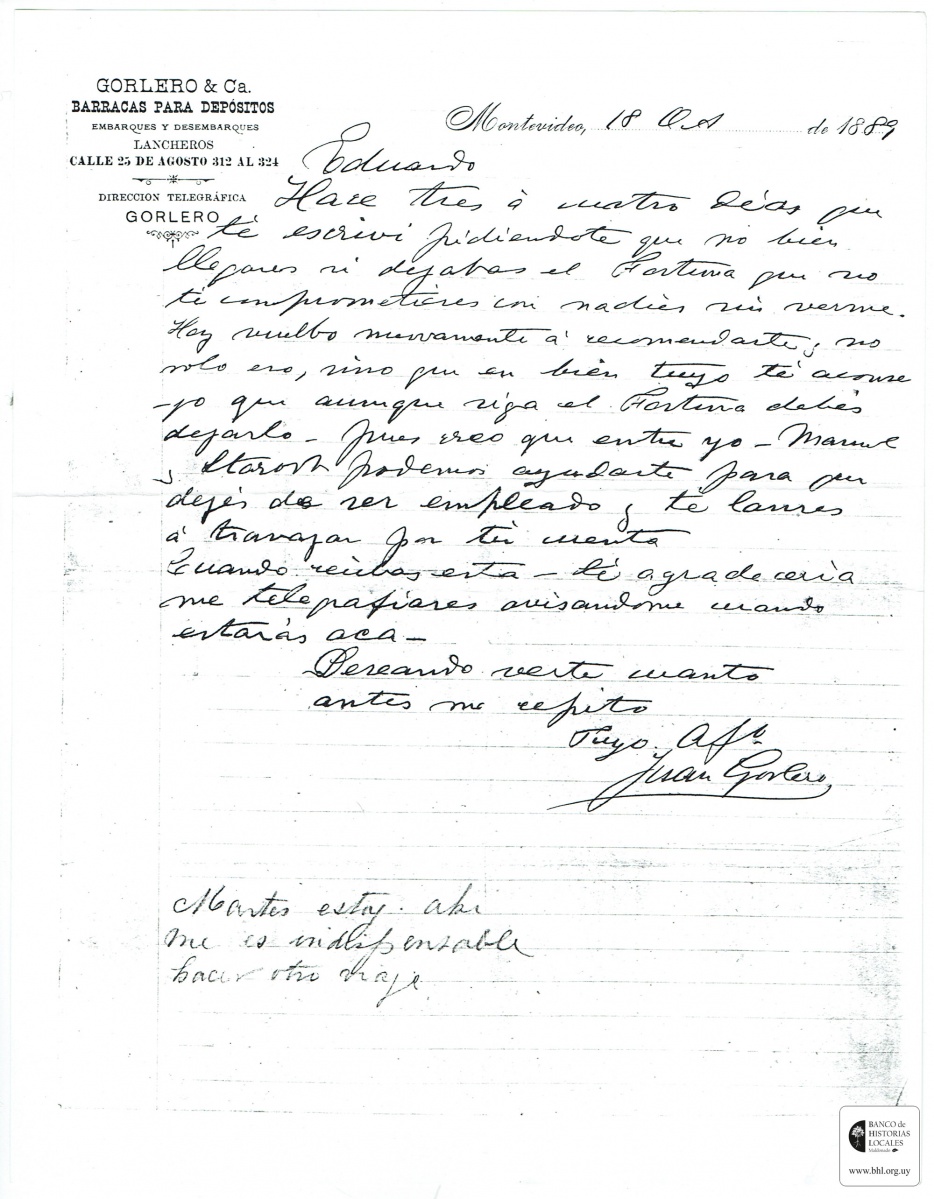 GORLERO & Ca.
BARRACAS PARA DEPÓSITOS
EMBARQUES Y DESEMBARQUES
LANCHEROS
CALLE 25 DE AGOSTO 312 AL 324
DIRECCION TELEGRÁFICA
GORLERO
Montevideo, 18 Oct de 1889
Eduardo
Hace tres à cuatro dias que
té escrivi pidiendote que no bien
llegares si dejabas el Fortuna que no
té comprometieres con nadies sin verme.
Hoy vuelbo nuevamente á recomendarte, no
solo eso, sino que en bién tuyo té aconse
-jo que aunque siga el Fortuna debés
dejarlo - pues creo que entre yo - Manuel
y podemos ayudarte para que
dejés de ser empleado y té lanses
á travajar por tú cuenta
Cuando recibas esta - té agradeceria
me telegrafiares avisandome cuando
estarás aca -
Deseando verte cuanto
antes me repito
Tuyo Afto
Juan Gorlero
Martes estoy ahi
me es indispensable
hacer otro viaje
BANCO de
HISTORIAS
LOCALES
Maldonado
www.bhl.org.uy